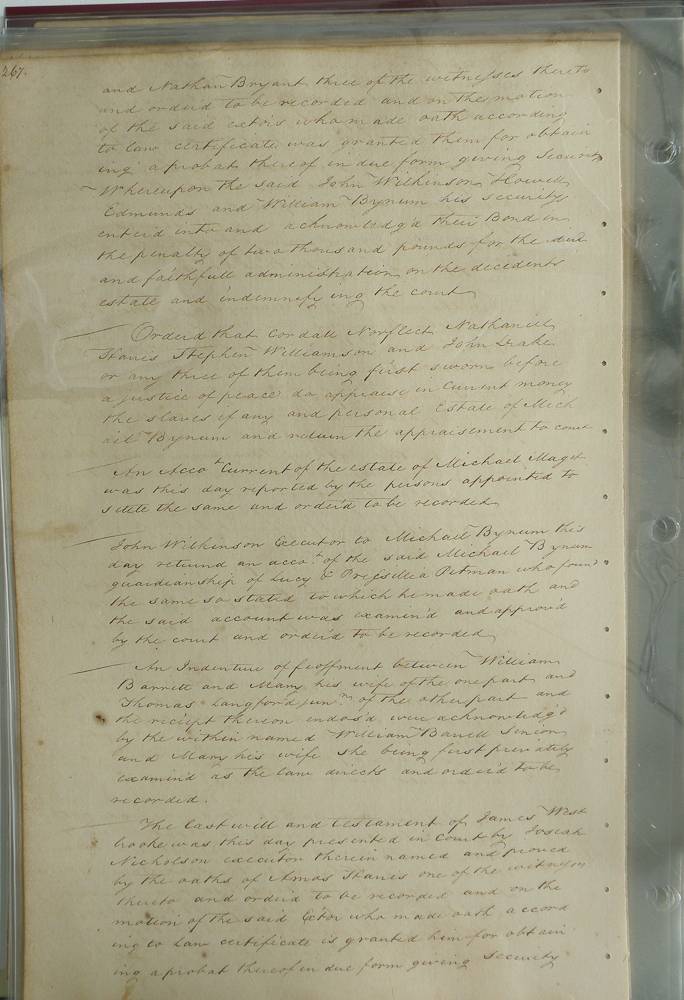 267.
and Nathan Bryant three of the witnesses thereto
and orderd to be recorded and on the motion
of the said extors who made oath according
to law certificate was granted them for obtain
ing a probat thereof in due form giving Security
Whereupon the said John Wilkinson Howell
Edmunds and William Bynum his security
enterd into and acknowledg'd their Bond in
the penalty of two thousand pounds for the due
and faithfull administration on the decedents
estate and indemnifying the court
Orderd that Cordall Norfleet Nathaniel
Stephen Williamson and John Drake
or any three of them being first sworn before
a justice of peace do appraise in Current money
the slaves if any and personal Estate of Mich
ail Bynum and return the appraisement to court
An Acco.t Current of the estate of Michael Maget
was this day reported by the persons appointed to
stete the same and order'd to be recorded
John Wilkinson Executor to Michail Bynum this
day returnd an acco.t of the said Michail Bynum
guardianship of Lucy & Precsillia Pitman who found
the same so stated to which he made oath and
the said account was examin'd and approv'd
by the court and order'd to be recorded
An Indenture of feoffment between William
Barrett and Mary his wife of the one part and
Thomas Langford jun.r of the other part and
the reciept thereon endos'd were acknowledg'd
by the within named William Barett Senior
and Mary his wife she being first privately
examin'd as the law directs and order'd to be
recorded.
The last will and testament of James West
brooke was this day presented in court by Josiah
Nicholson executor therein named and proved
by the oaths of Amos one of the witnesses
thereto and order'd to be recorded and on the
motion of the said Extor who made oath accord
ing to Law certificate is granted him for obtain
ing a probat thereof in due form giving Security